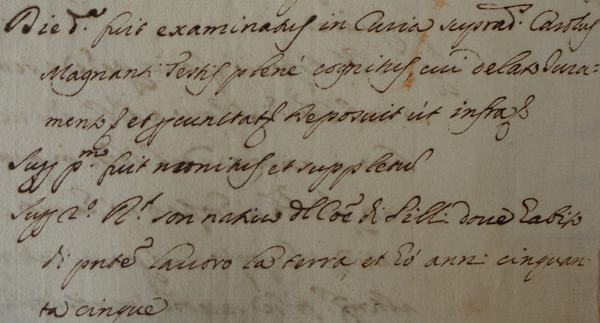 Die d.ª fuit examinatus in Curia suprad.ª Carolus
Magnanti Testis plené cognitus, cui delato Jura=
mento et percunctatus deposuit ut infra
Sup p.mo fuit monitus et
Sup 2.º R.t son nativo di Celli dove habito
di pnte lavoro la terra, et hò anni cinquan
ta cinque